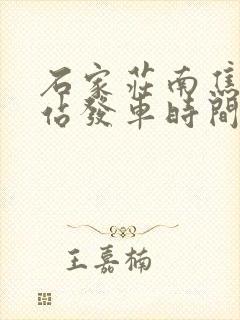 石家莊南焦
佔發車時間
王嘉楠